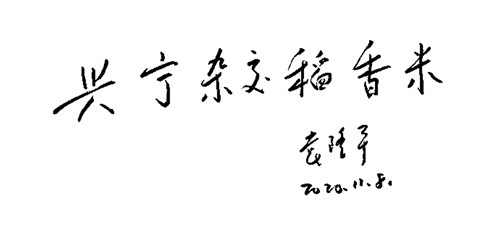 兴宁杂交稻香米
袁隆平
2020.11.8.